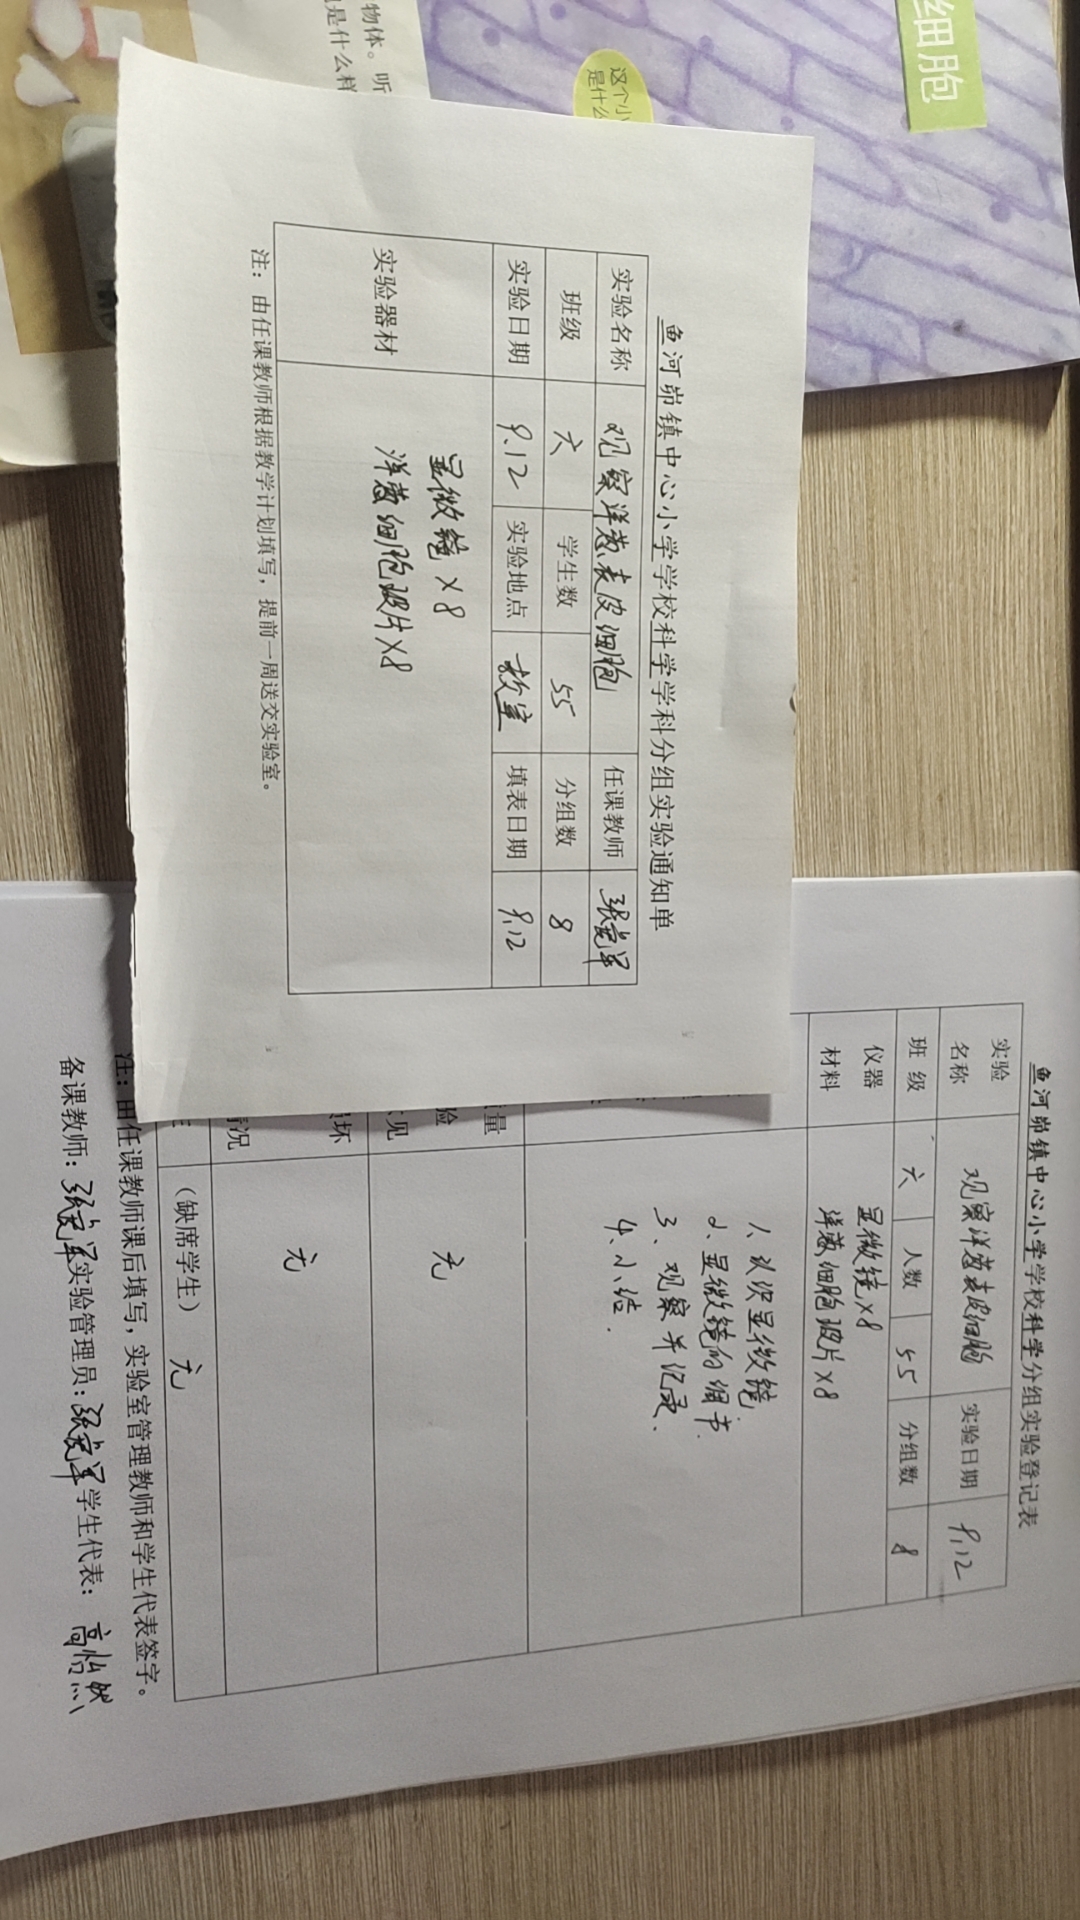 细胞
这个小
是什么
物体。听
是什么样
鱼河峁镇中心小学学校科学学科分组实验通知单
实验名称 观察洋葱表皮细胞 任课教师
班级 六 学生数 55 分组数 8
实验日期 9.12 实验地点 教室 填表日期 9.12
实验器材
显微镜×8
洋葱细胞玻片×8
注：由任课教师根据教学计划填写，提前一周送交实验室。
鱼河峁镇中心小学学校科学分组实验登记表
实验名称 观察洋葱表皮细胞 实验日期 9.12
班级 六 人数 55 分组数 8
仪器材料
显微镜×8
洋葱细胞玻片×8
1、认识显微镜.
2、显微镜的调节.
3、观察并记录.
4、小结.
量
验
见 无
坏
情况 无
（缺席学生） 无
注：由任课教师课后填写，实验室管理教师和学生代表签字。
备课教师： 实验管理员： 学生代表：高怡然